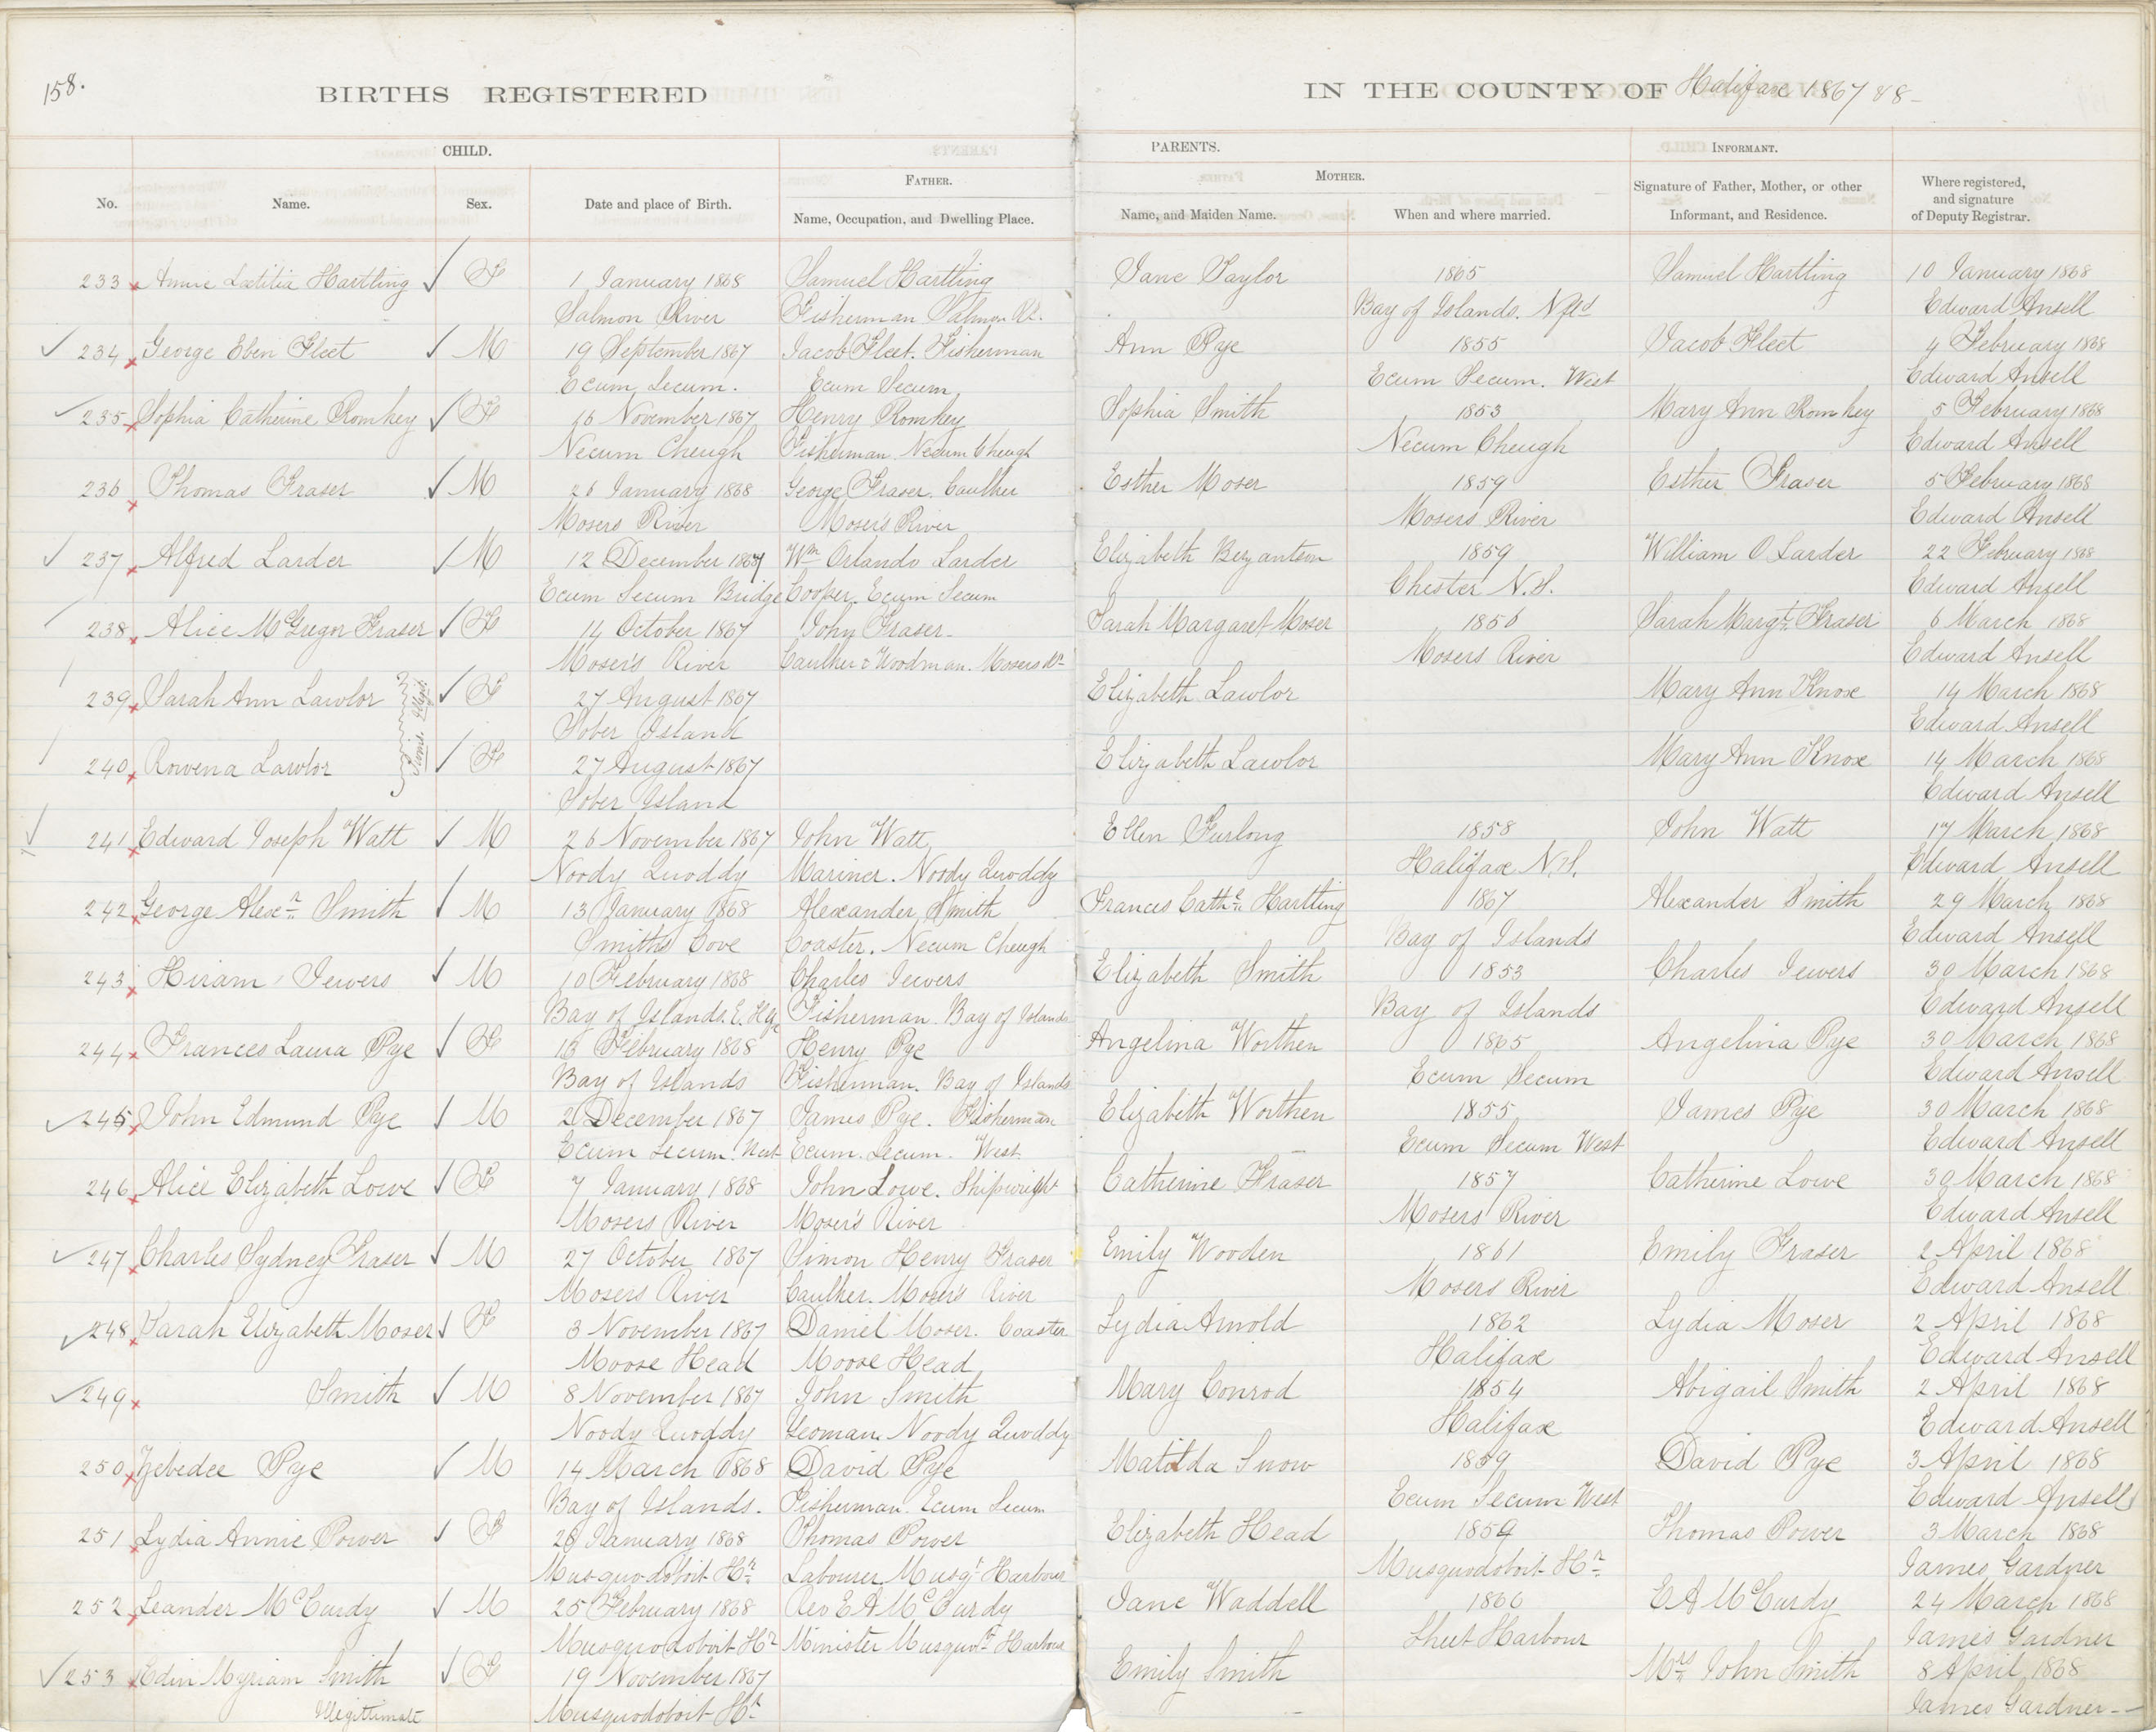 158.
BIRTHS REGISTERED IN THE COUNTY OF Halifax 1867 & 8 -
CHILD. PARENTS. INFORMANT.
No. Name. Sex. Date and place of Birth. FATHER. Name, Occupation, and Dwelling Place. MOTHER. Name, and Maiden Name. When and where married. Signature of Father, Mother, or other Informant, and Residence. Where registered, and signature of Deputy Registrar.
233 Annie Lætitia Hartling F 1 January 1868 Samuel Hartling Jane Taylor 1865 Samuel Hartling 10 January 1868
Salmon River Fisherman Salmon Rr. Bay of Islands. Nfld Edward Ansell
234 George Eben Fleet M 19 September 1867 Jacob Fleet. Fisherman Ann Pye 1855 Jacob Fleet 4 February 1868
Ecum Secum. Ecum Secum Ecum Secum. West Edward Ansell
235 Sophia Catherine Romkey F 16 November 1867 Henry Romkey Sophia Smith 1853 Mary Ann Romkey 5 February 1868
Necum Cheugh Fisherman. Necum Cheugh Necum Cheugh Edward Ansell
236 Thomas Fraser M 26 January 1868 George Fraser. Caulker Esther Moser 1859 Esther Fraser 5 February 1868
Mosers River Moser's River Mosers River Edward Ansell
237 Alfred Larder M 12 December 1867 Wm Orlando Larder Elizabeth 1859 William O Larder 22 February 1868
Ecum Secum Bridge Cooper. Ecum Secum Chester N.S. Edward Ansell
238 Alice McGregor Fraser F 14 October 1867 John Fraser Sarah Margaret Moser 1856 Sarah Margt Fraser 6 March 1868
Moser's River Caulker & Woodman. Mosers Rr Mosers River Edward Ansell
239 Sarah Ann Lawlor F 27 August 1867 Elizabeth Lawlor Mary Ann Knox 14 March 1868
Sober Island Edward Ansell
240 Rowena Lawlor F 27 August 1867 Elizabeth Lawlor Mary Ann Knox 14 March 1868
Sober Island Edward Ansell
241 Edward Joseph Watt M 26 November 1867 John Watt Ellen Furlong 1858 John Watt 17 March 1868
Noody Quoddy Mariner. Noody Quoddy Halifax N.S. Edward Ansell
242 George Alexr Smith M 13 January 1868 Alexander Smith Frances Cathe Hartling 1867 Alexander Smith 29 March 1868
Smiths Cove Coaster. Necum Cheugh Bay of Islands Edward Ansell
243 Hiram Jewers M 10 February 1868 Charles Jewers Elizabeth Smith 1853 Charles Jewers 30 March 1868
Bay of Islands. E. Hfx Fisherman. Bay of Islands Bay of Islands Edward Ansell
244 Frances Laura Pye F 13 February 1868 Henry Pye Angelina Worthen 1865 Angelina Pye 30 March 1868
Bay of Islands Fisherman. Bay of Islands Ecum Secum Edward Ansell
245 John Edmund Pye M 21 December 1867 James Pye. Fisherman Elizabeth Worthen 1855 James Pye 30 March 1868
Ecum Secum. West Ecum. Secum. West. Ecum Secum West Edward Ansell
246 Alice Elizabeth Lowe F 7 January 1868 John Lowe. Shipwright Catherine Fraser 1857 Catherine Lowe 30 March 1868
Mosers River Moser's River Mosers River Edward Ansell
247 Charles Sydney Fraser M 27 October 1867 Simon Henry Fraser Emily Wooden 1861 Emily Fraser 2 April 1868
Mosers River Caulker. Moser's River Mosers River Edward Ansell
248 Sarah Elizabeth Moser F 3 November 1867 Daniel Moser. Coaster Lydia Arnold 1862 Lydia Moser 2 April 1868
Moose Head Moose Head Halifax Edward Ansell
249 Smith M 8 November 1867 John Smith Mary Conrod 1854 Abigail Smith 2 April 1868
Noody Quoddy Yeoman. Noody Quoddy Halifax Edward Ansell
250 Zebedee Pye M 14 March 1868 David Pye Matilda Snow 1859 David Pye 3 April 1868
Bay of Islands. Fisherman Ecum Secum Ecum Secum West Edward Ansell
251 Lydia Annie Power F 28 January 1868 Thomas Power Elizabeth Head 1859 Thomas Power 3 March 1868
Musquodoboit Hr Labourer Musqt Harbour Musquodoboit Hr James Gardner
252 Leander McCurdy M 25 February 1868 Rev E A McCurdy Jane Waddell 1866 E A McCurdy 24 March 1868
Musquodoboit Hr Minister Musquot Harbour Sheet Harbour James Gardner
253 Edin Myriam Smith F 19 November 1867 Emily Smith Mrs John Smith 8 April 1868
Illegitimate Musquodoboit Hr James Gardner